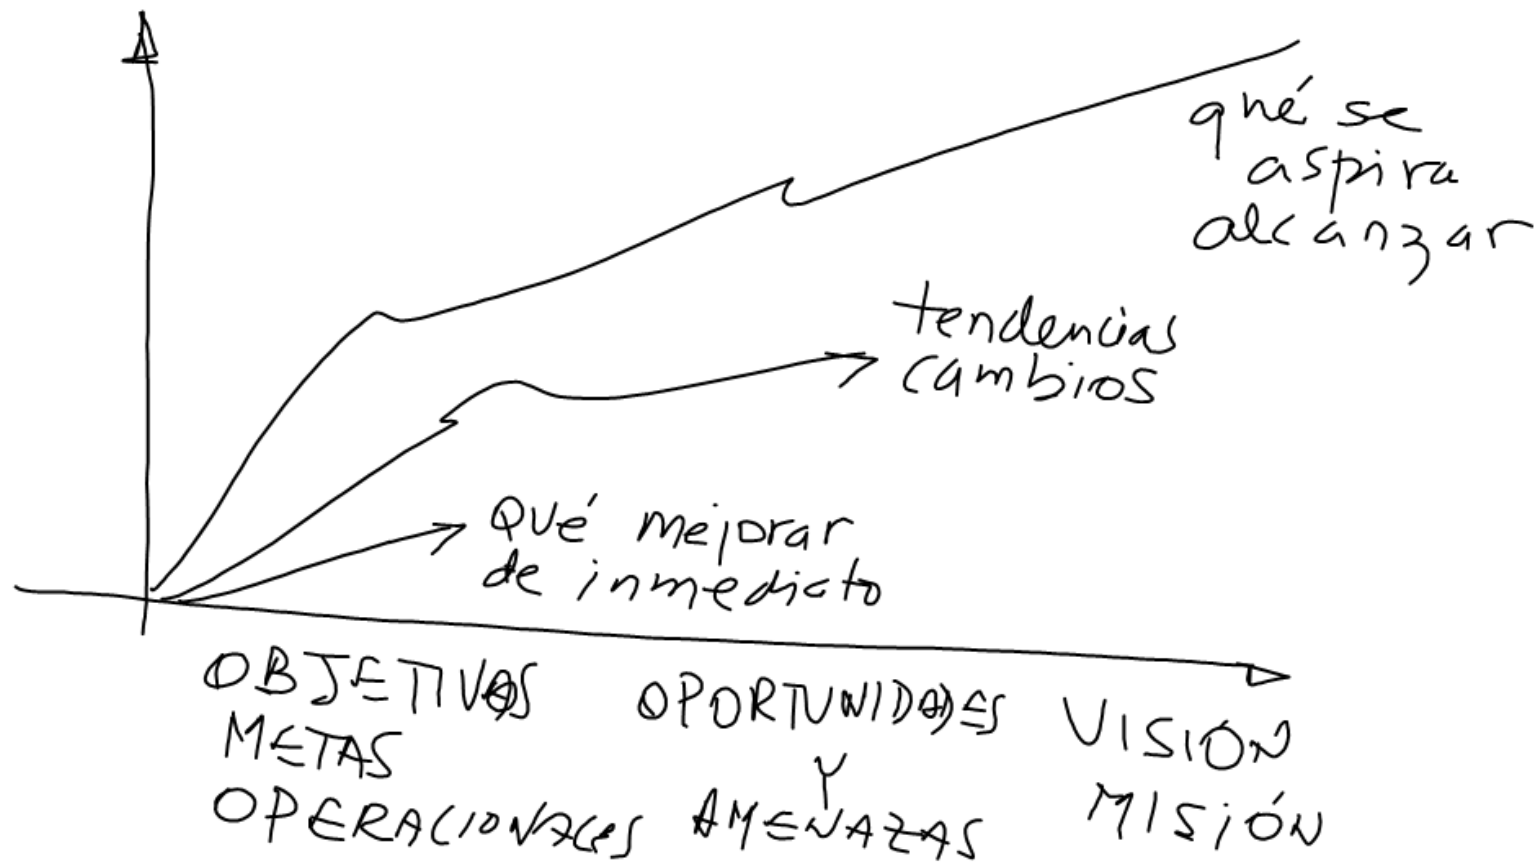 qué se
aspira
alcanzar
tendencias
cambios
Qué mejorar
de inmediato
OBJETIVOS
METAS
OPERACIONALES
OPORTUNIDADES
Y
AMENAZAS
VISIÓN
MISIÓN